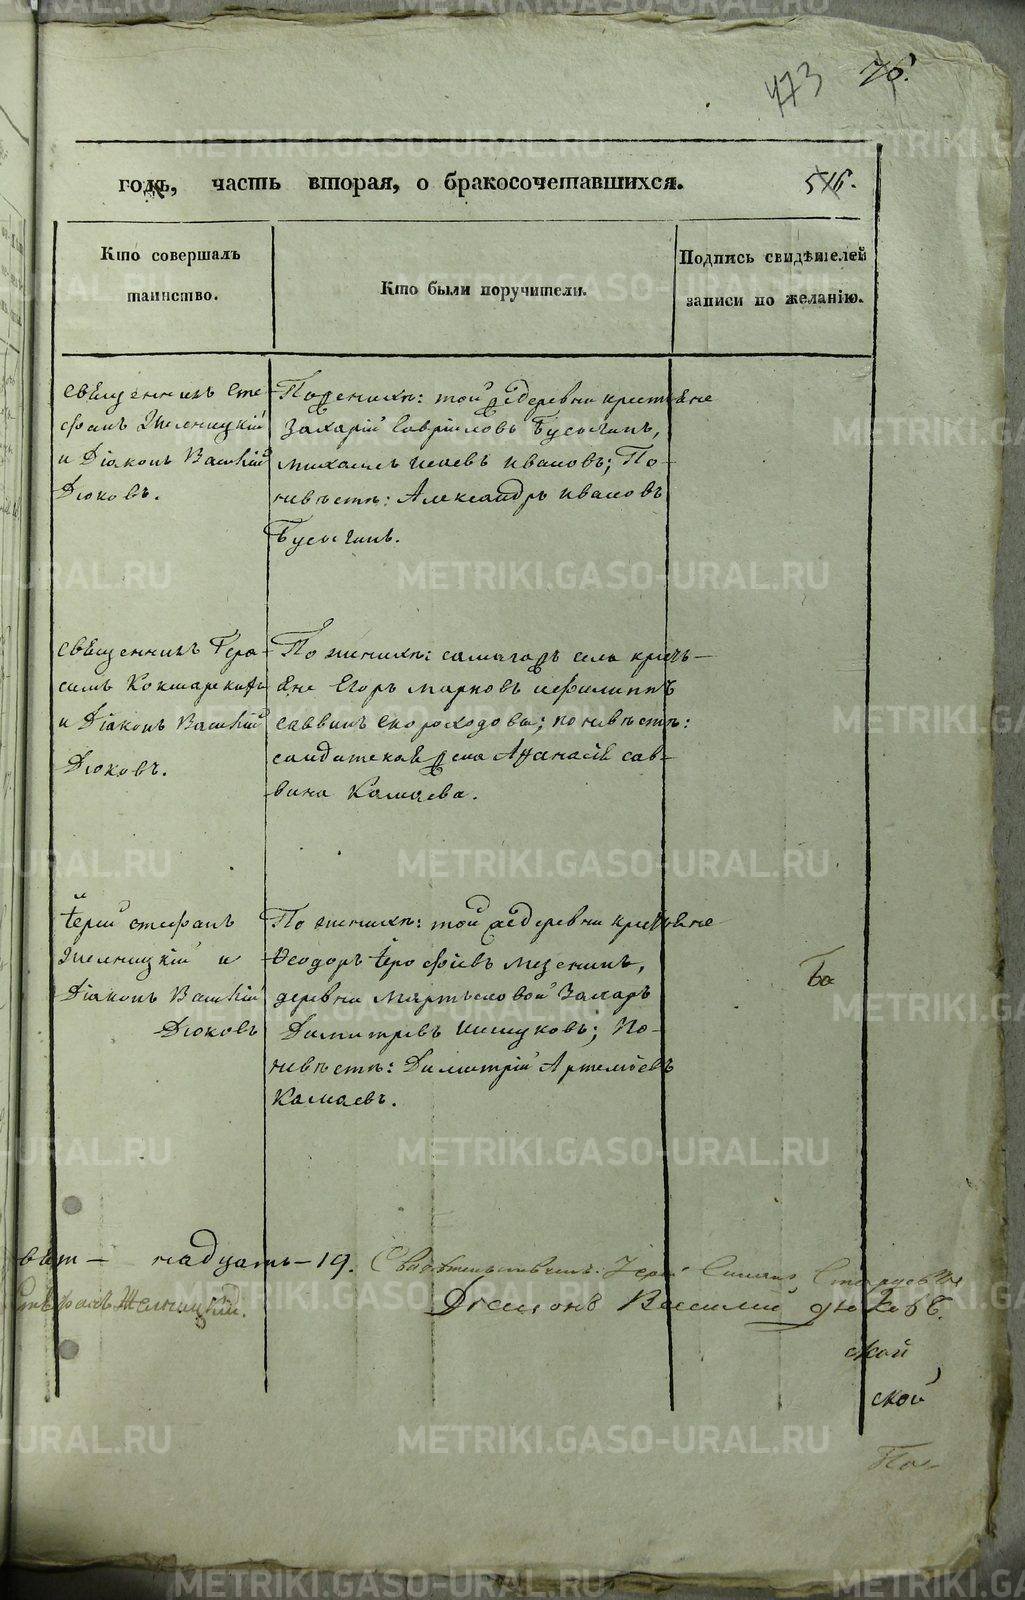 473 76.
годъ, часть вторая, о бракосочетавшихся. 516.
Кто совершалъ
таинство.
Кто были поручители.
Подпись свидѣтелей
записи по желанію.
священникъ Сте-
фанъ Желницкій
и Діаконъ Василій
Дюковъ.
По женихѣ: той же деревни крестьяне
Захарій Гавріиловъ Бусыгинъ,
Михаилъ Исаевъ Ивановъ; По
невѣстѣ: Александръ Ивановъ
Бусыгинъ.
священникъ Гера-
симъ Кокшарскій
и Діаконъ Василій
Дюковъ.
По женихѣ: самагожъ села кресть-
яне Егоръ Марковъ и Филиппъ
Саввинъ Скороходовы; по невѣстѣ:
солдатской сына Афанасій Сав-
вина Камаева.
Іерей Стефанъ
Желницкій и
Діаконъ Василій
Дюковъ
По женихѣ: той же деревни крестьяне
Ѳеодоръ Іерофѣевъ Мезенинъ,
деревни Мартьяновой Захаръ
Димитріевъ Шишуковъ; По
невѣстѣ: Димитрій Артемьевъ
Камаевъ.
Бо
вят- надцать-19. Свидѣтельствуемъ: Іерей
Стефанъ Желницкій. Діаконъ Василій Дюковъ.
ской
ской
По
METRIKI.GASO-URAL.RU